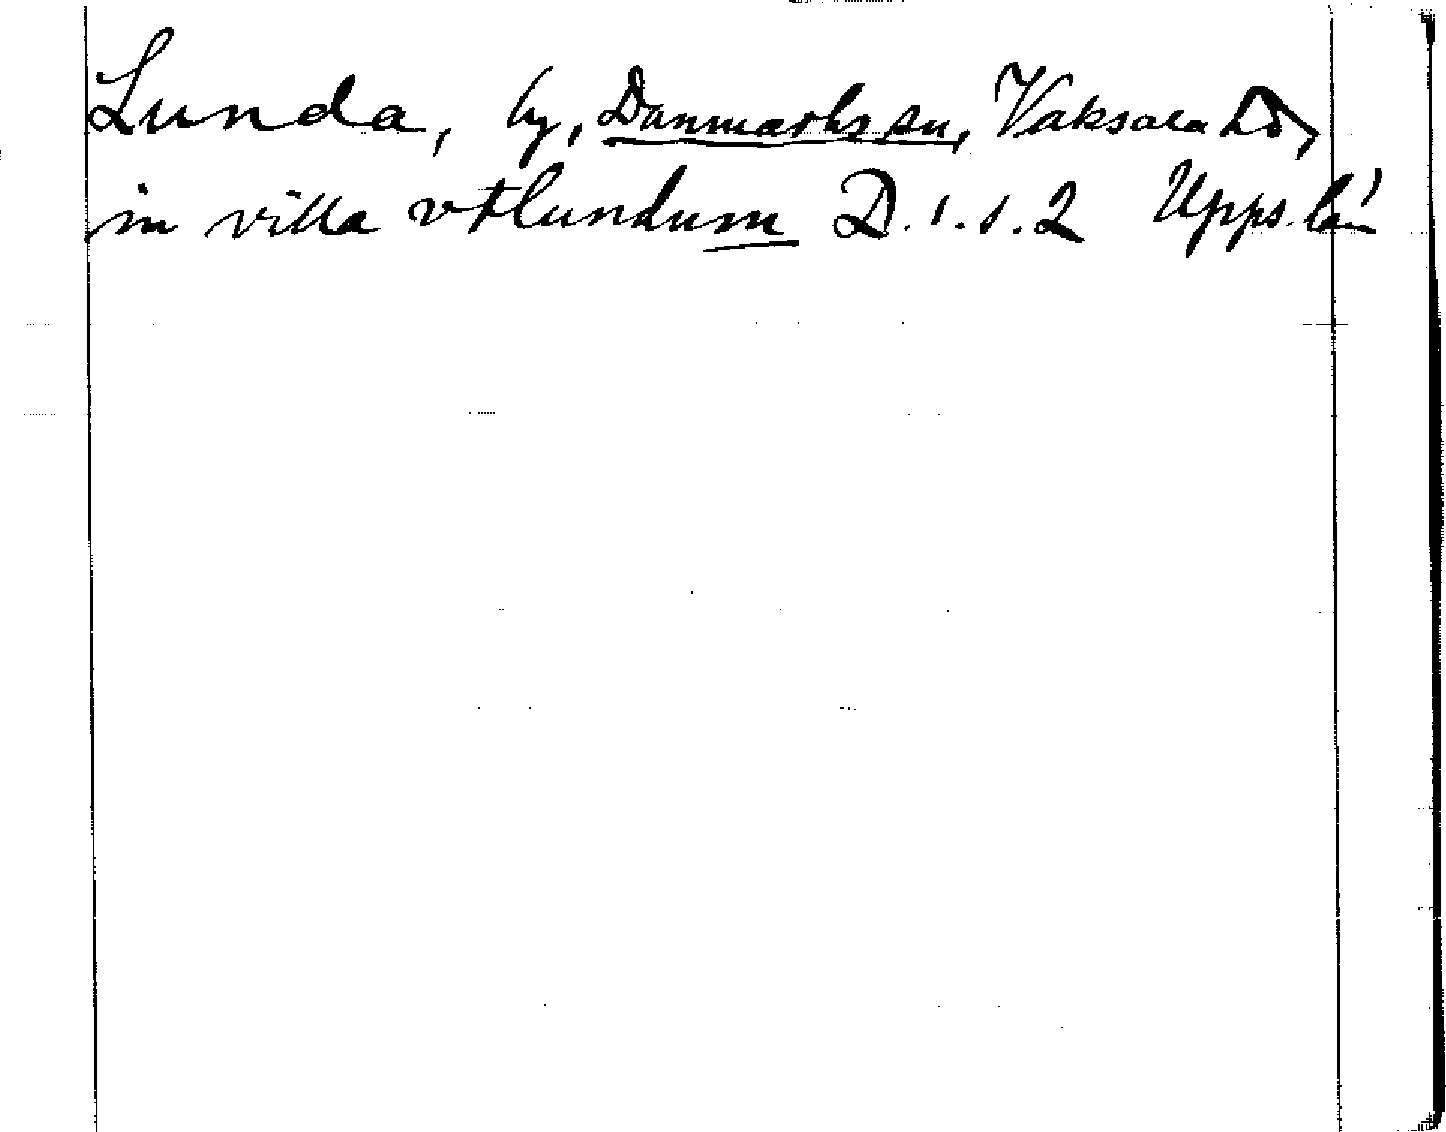 Lunda, by, Danmarks sn, Vaksala hd,
in villa vtlundum D.1.s.2 Upps. län